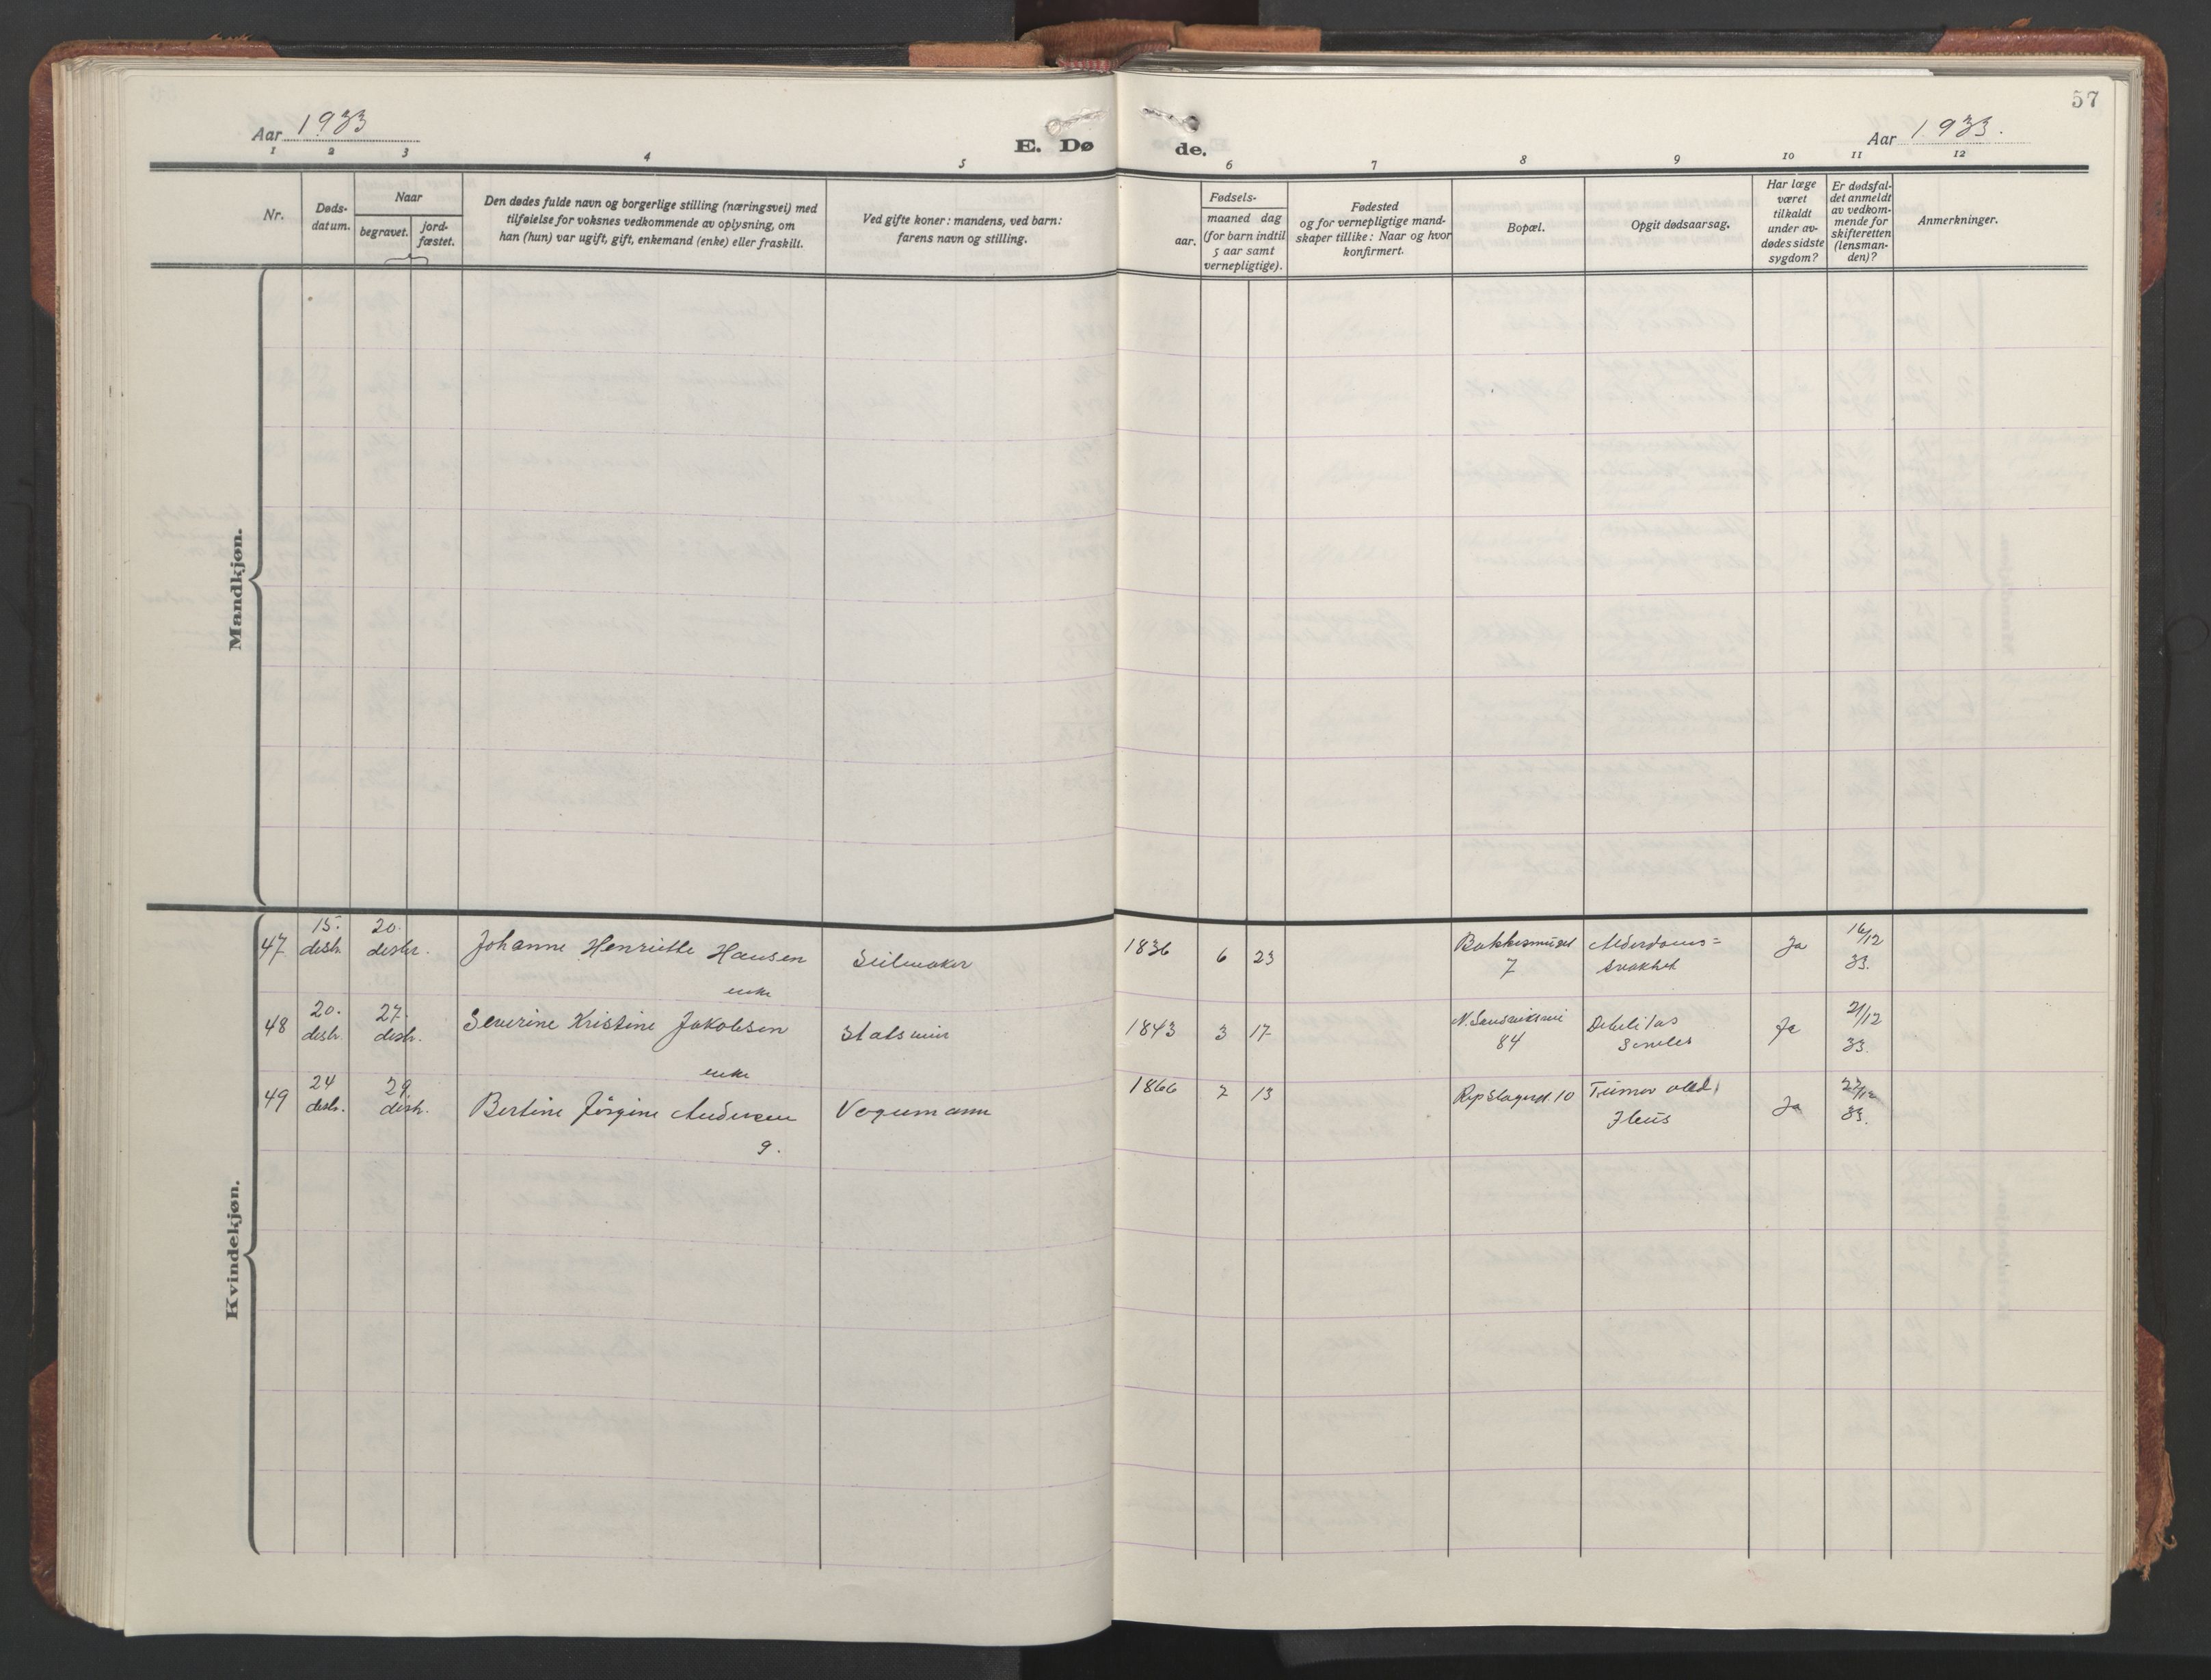 57
Aar 1933
Aar 1933.
E. Dø de.
1 2 3 4 5 6 7 8 9 10 11 12
Nr.
Døds-
datum.
Naar
begravet.
jord-
fæstet.
Den dødes fulde navn og borgerlige stilling (næringsvei) med
tilføielse for voksnes vedkommende av oplysning, om
han (hun) var ugift, gift, enkemand (enke) eller fraskilt.
Ved gifte koner: mandens, ved barn:
farens navn og stilling.
aar.
Fødsels-
maaned dag
(for barn indtil
5 aar samt
vernepligtige).
Fødested
og for vernepligtige mand-
skaper tillike: Naar og hvor
konfirmert.
Bopæl.
Opgit dødsaarsag.
Har læge
været
tilkaldt
under av-
dødes sidste
sygdom?
Er dødsfal-
det anmeldt
av vedkom-
mende for
skifteretten
(lensman-
den)?
Anmerkninger.
Mandkjøn.
Kvindekjøn.
47 15. desbr. 20. desbr. Johanne Henriette Hansen Seilmaker 1836 6 23 Bakkesmuget Alderdoms=
enke 7 svakhet Ja 16/12
33.
48 20. desbr. 27. desbr. Severine Kristine Jakobsen 1843 3 17 N. Sandviksvei Debilitas
enke 84 Seniles Ja 21/12
33.
49 24 desbr. 29. desbr. Bertine Jörgine Andersen Vognmann 1866 2 13 Repslagergt. 10 Tumor abd.
g. Ileus Ja 27/12
33.